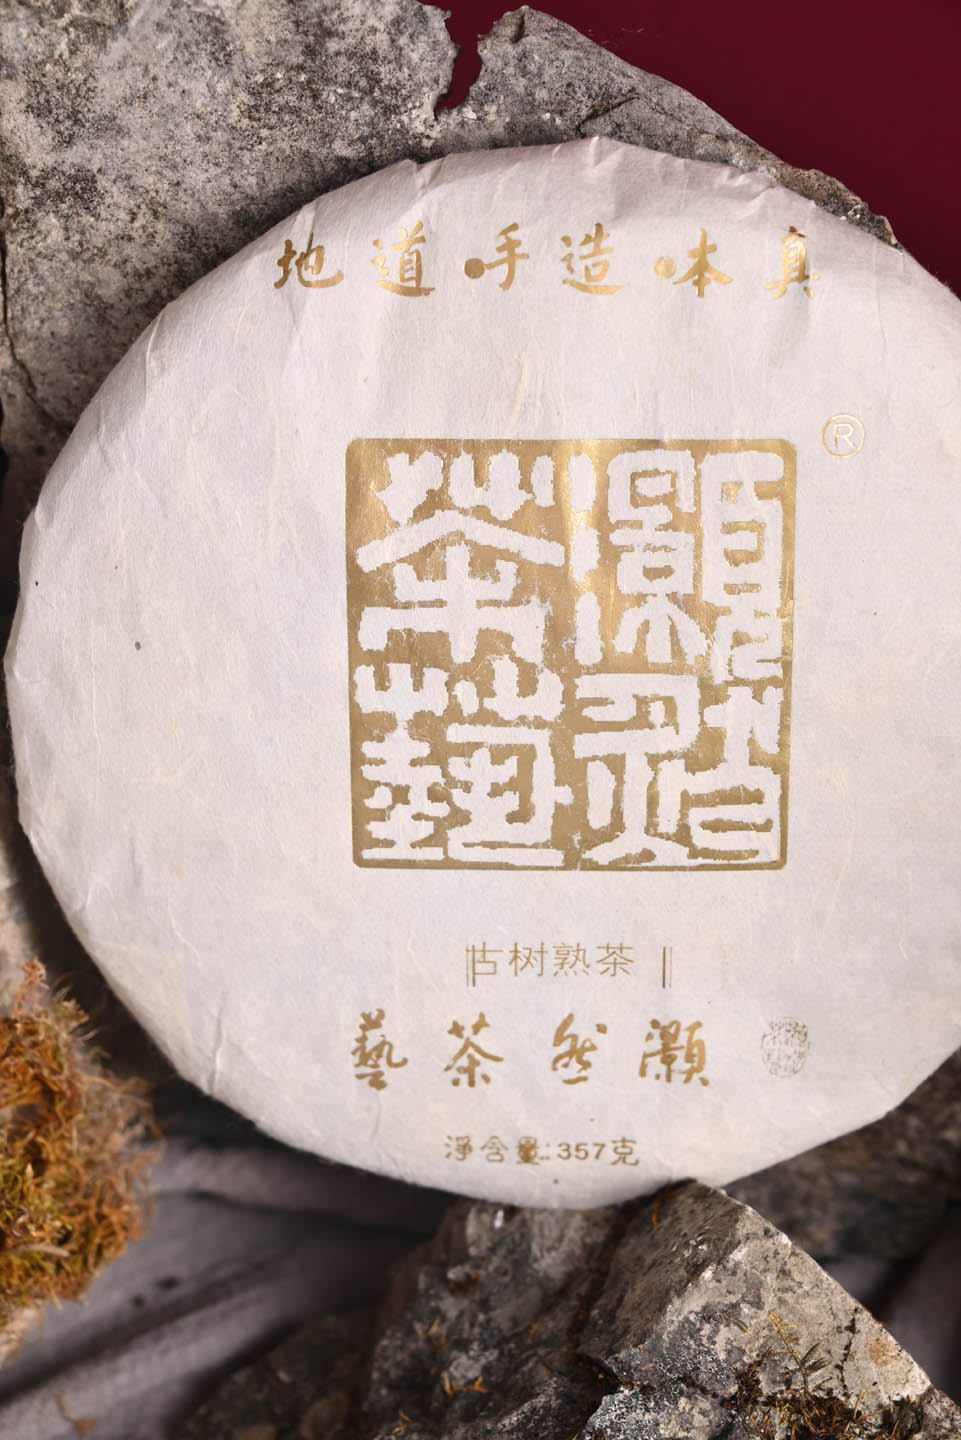 地道·手造·本真
®
灏然茶藝
古树熟茶
藝茶然灏
淨含量:357克